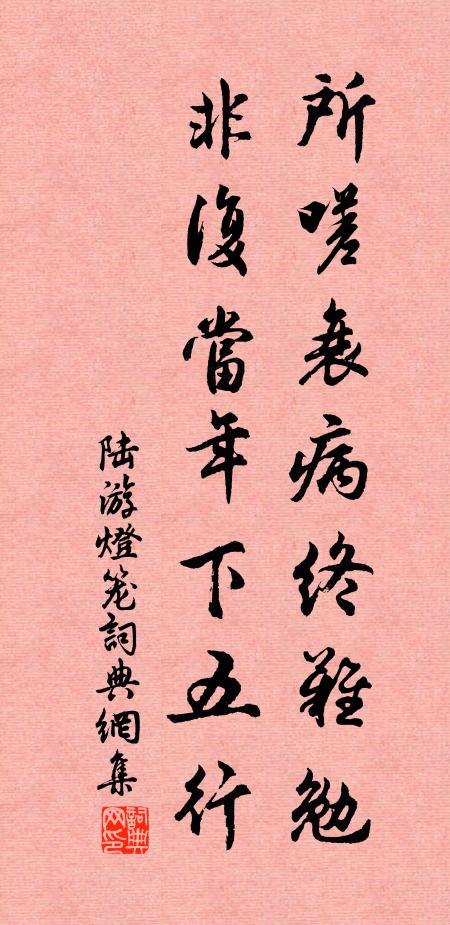 所嗟衰病終難勉
非復當年下五行
陆游燈笼詞典網集
詞典网印